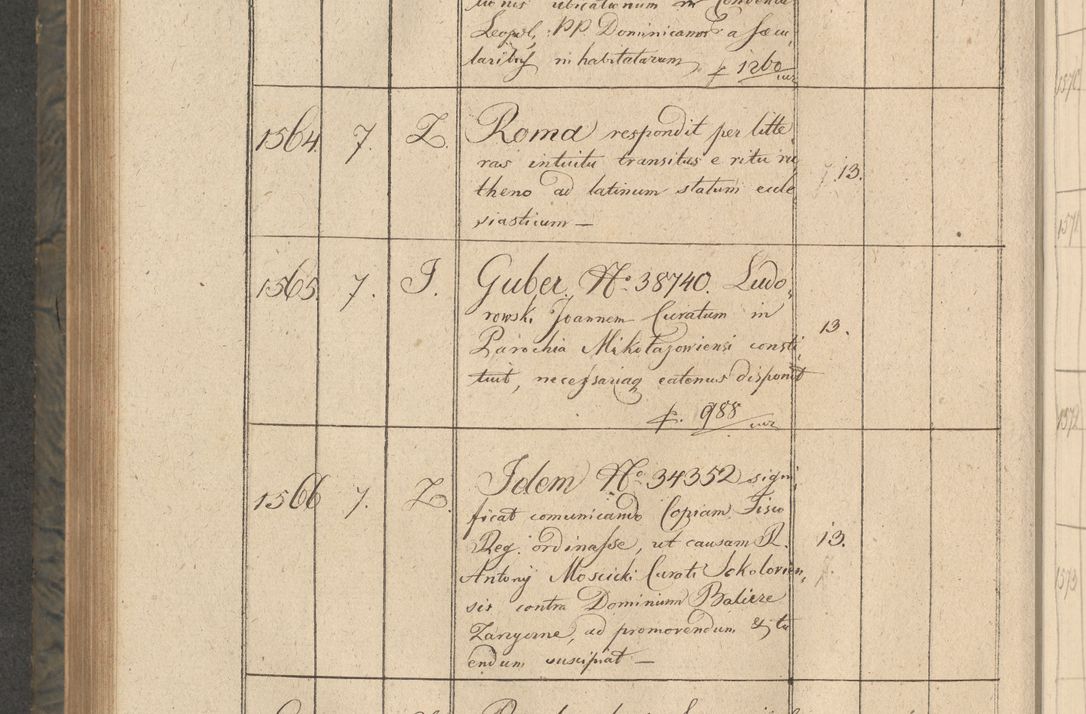 Leopol, PP. Dominicanor a sæcu,
laribus inhabitatarum f 1260
1564. 7. Z. Roma respondit per litte
ras intuitu transitus e ritu ru
theno ad latinum statum eccle 13.
siasticum —
1565. 7. I. Guber. No. 38740. Ludo,
rowski Joannem Curatum in 13.
Parochia Mikołajoviensi consti,
tuit, necessariaq eatenus disponit
f. 988
1566 7. Z. Idem No. 34352 signi,
ficat comunicando Copiam Fisco
Reg. ordinasse, ut causam R. 13.
Antonij Moscicki Curati Sokolovien,
sis contra Dominium
ad promovendum & tu
endum suscipiat —
1571
1572
1573